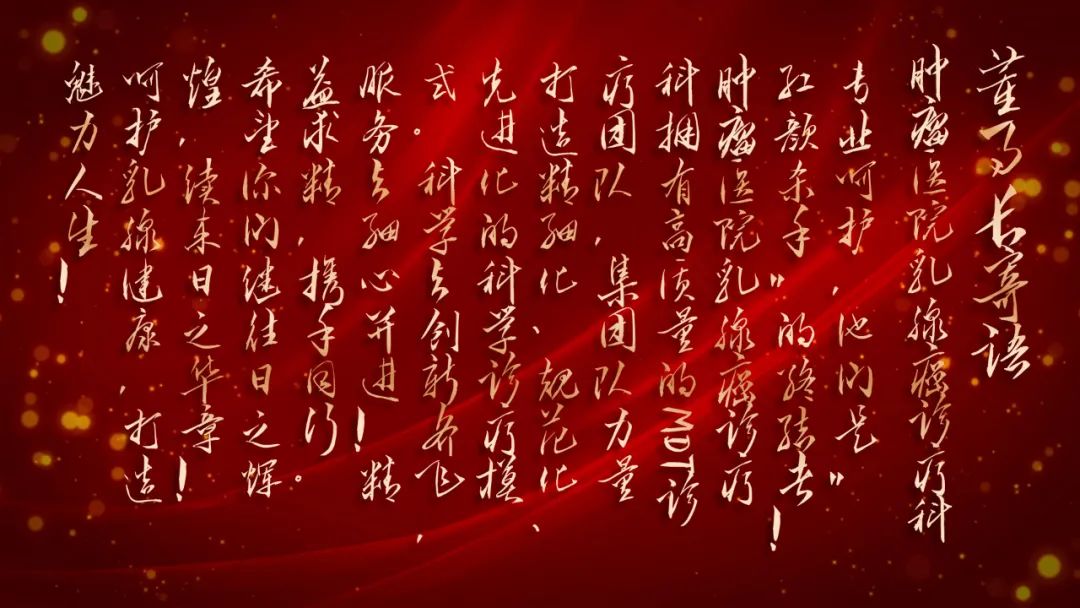 董事长寄语
肿瘤医院乳腺癌诊疗科
专业呵护，他们是”
红颜杀手”的终结者！
肿瘤医院乳腺癌诊疗
科拥有高质量的MDT诊
疗团队，集团队力量
打造精细化、规范化、
先进化的科学诊疗模
式。科学与创新齐飞，
服务与细心并进！精
益求精，携手同行。
希望你们继往日之辉
煌，续来日之华章！
呵护乳腺健康，打造
魅力人生！